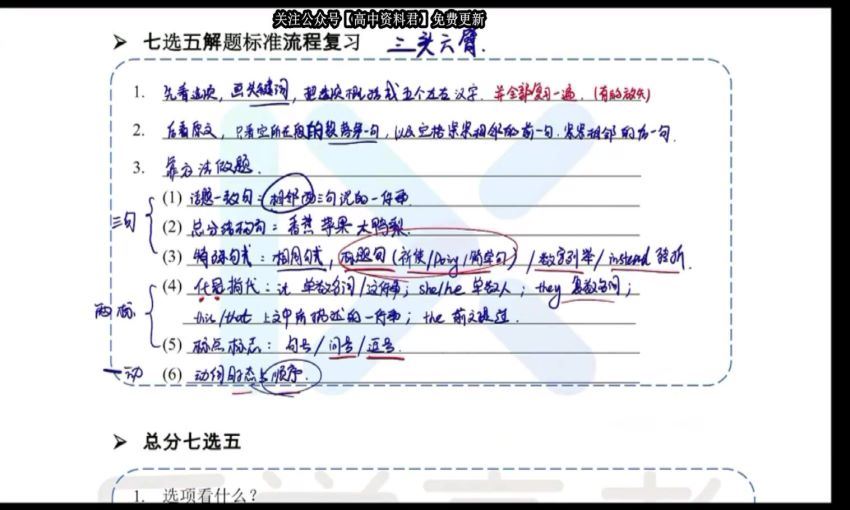 关注公众号【高中资料君】免费更新
➤ 七选五解题标准流程复习 三头六臂.
1. 先看选项，画关键词，把选项概括成五个左右汉字. 并全部复习一遍.（有的放矢）
2. 后看原文，只看空所在段的段落第一句，以及空格紧紧相邻的前一句. 紧紧相邻的后一句.
3. 靠方法做题.
三句
(1) 话题一致句：相邻两三句说的一件事
(2) 总分结构句：香蕉 苹果 大鸭梨.
(3) 特殊句式：相同句式，标题句（祈使/Doing/简单句）/数字列举/instead 转折.
两标
(4) 代词指代：it 单数名词/这件事；she/he 单数人；they 复数名词；
this/that 上文中所描述的一件事；the 前文提过.
(5) 标点标志：句号/问号/逗号.
一动
(6) 动词时态与顺序.
➤ 总分七选五
1. 选项看什么？